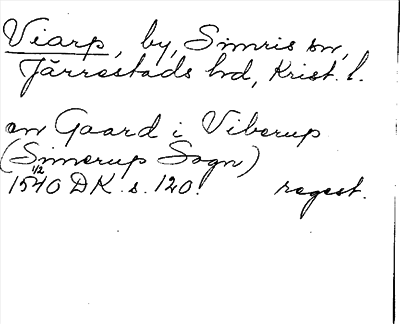 Viarp, by, Simris sn,
Järrestads hd, Krist. l.
en Gaard i Viberup
(Simerup Sogn)
1/2
1540 DK. s. 120. regest.